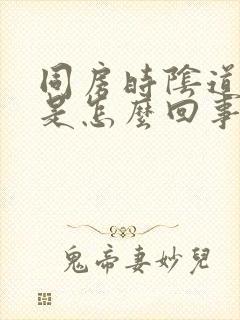 同房時陰道
是怎麼回事
鬼帝妻妙兒